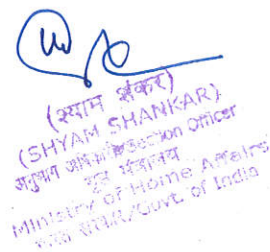 (श्याम शंकर)
(SHYAM SHANKAR)
अनुभाग Section Officer
गृह मंत्रालय
Ministry of Home Affairs
भारत सरकार/Govt. of India